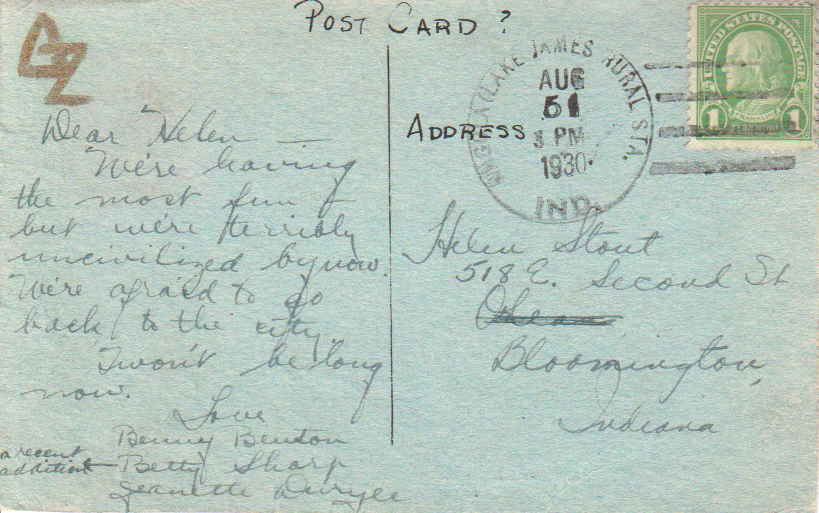 POST CARD ?
ΔZ
Dear Helen —
We're having
the most fun
but we're terribly
uncivilized by now.
We're afraid to go
back to the city.
'Twon't be long
now.
Love
Benny Benton
a recent
addition — Betty Sharp
Jeanette Duryee
ADDRESS
Helen Stout
518 E. Second St
Bloomington,
Indiana
LAKE JAMES RURAL STA.
AUG
3 PM
1930
IND.
UNITED STATES POSTAGE
1 1